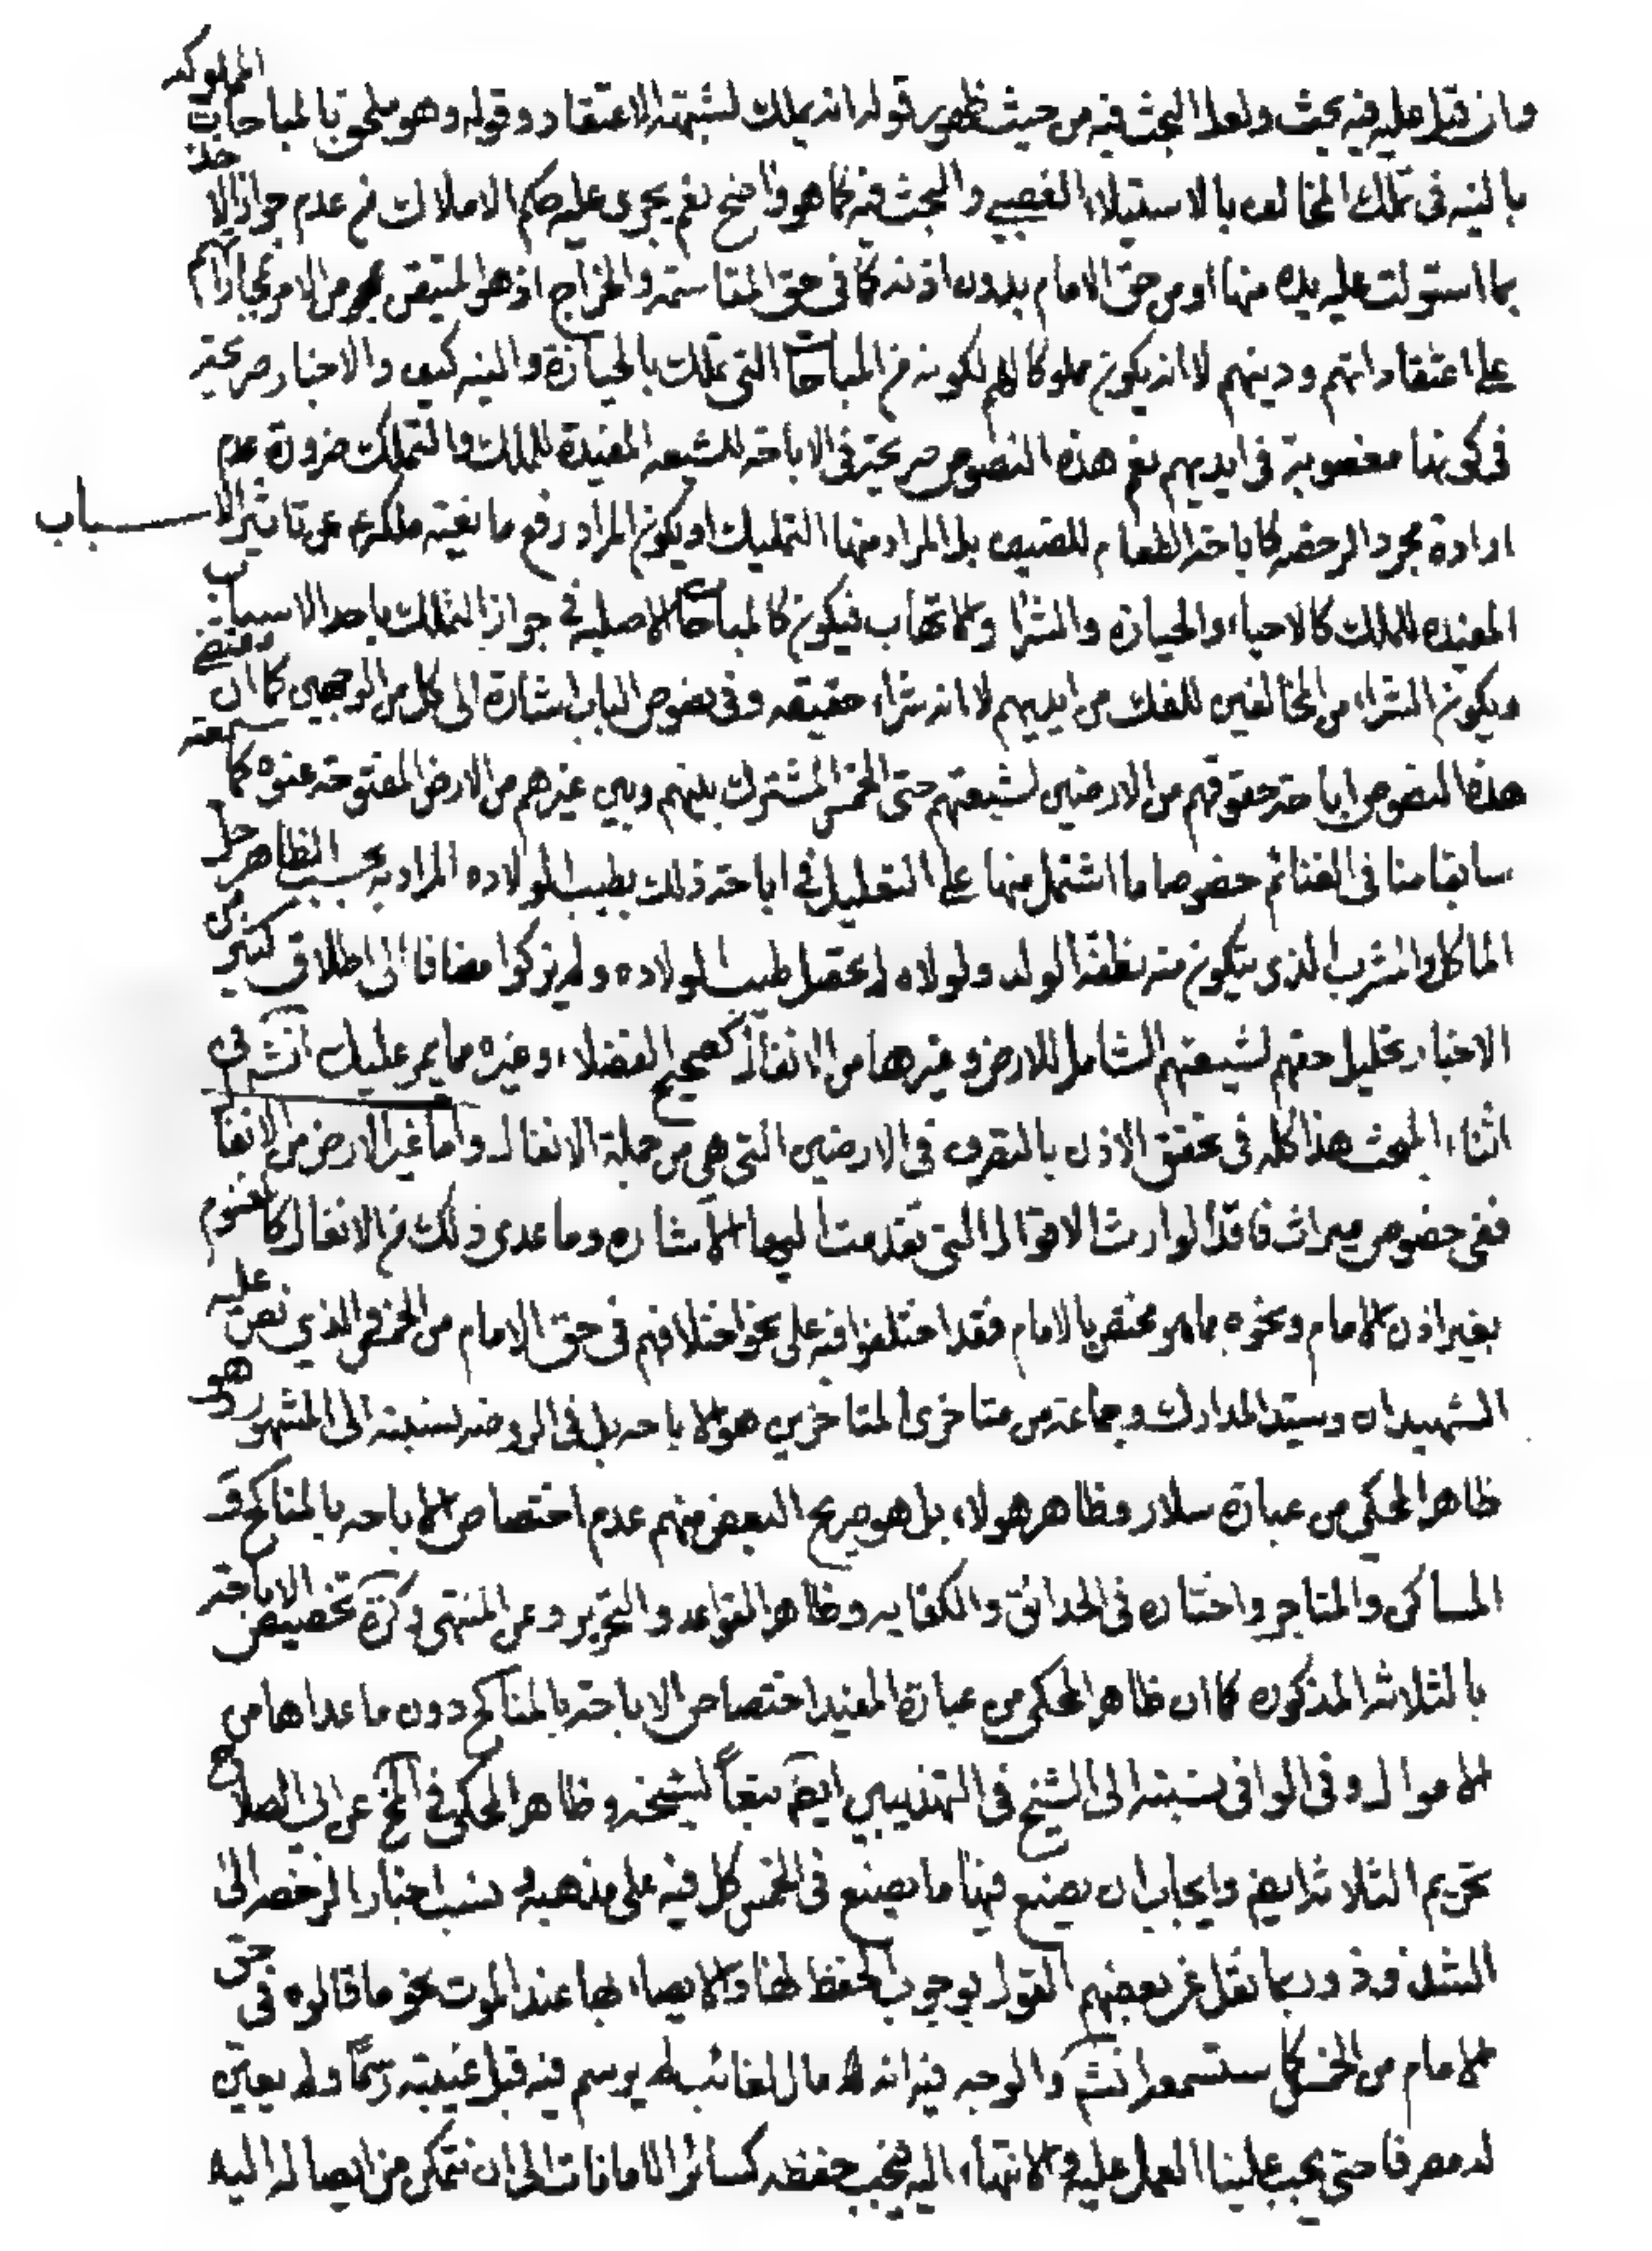 وان قيل عليه فيه بحث ولعل البحث فيه من حيث ظهور قوله انه يملك لشبهة الاعتقاد وقوله وهو ملحق بالمباحات المملوكه
بالنيه في تملك المخالف بالاستيلاء الغصبي والبحث فيه كما هو واضح نعم يجري عليه حكم الاملاك في عدم جواز الاخذ
مما استولت عليه يده منها او من حق الامام بدون اذنه كما في حق المقاسمه والخراج اذ هو المتيقن من الامر بمجاراتهم
على اعتقاداتهم ودينهم لا انه يكون مملوكا لهم لكونه من المباحات التي تملك بالحيازة والنيه كيف والاخبار صريحة
في كونها مغصوبة في ايديهم نعم هذه النصوص صريحة في الاباحه للشيعه المفيدة للملك والتملك ضرورة عدم
ارادة مجرد الرخصه كاباحة الطعام للضيف بل المراد منها التمليك او يكون المراد رفع مانعية ملكهم عن تاثير الاسباب
المفيده للملك كالاحياء والحيازه والشراء والاتهاب فيكون كالمباحات الاصليه في جواز التملك باحد الاسباب
ويكون الشراء من المخالفين للفك من ايديهم لا انه شراء حقيقه وفي نصوص الباب اشارة الى كل من الوجهين كما ان مقتضى
هذه النصوص اباحة حقوقهم من الارضين لشيعتهم حتى الخمس المشترك بينهم وبين غيرهم من الارض المفتوحة عنوه كما سمعته
سابقا منا في الغنائم خصوصا ما اشتمل منها على التعليل في اباحة ذلك بطيب الولاده المراد به بحسب الظاهر حل
الماكل والمشرب الذي يتكون منه نطفة الولد ولولاه لم يحصل طيب الولاده ولم يزكوا مضافا الى اطلاق كثير من
الاخبار تحليل حقهم لشيعتهم الشامل للارض وغيرها من الانفال كصحيح الفضلاء وغيره مما يمر عليك انش في
اثناء البحث هذا كله في تحقق الاذن بالتصرف في الارضين التي هي من جملة الانفال واما غير الارض من الانفا
ففي خصوص ميراث فاقد الوارث الاقوال التي تقدمت اليها الاشاره وما عدى ذلك من الانفال كالمغنوم
بغير اذن الامام ونحوه مما هو مختص بالامام فقد اختلفوا فيه على نحو اختلافهم في حق الامام من الخمس فالذي نص عليه
الشهيدان وسيد المدارك وجماعة من متاخري المتاخرين هو الاباحه بل في الروضه نسبته الى المشهور وهو
ظاهر المحكي من عبارة سلار وظاهر هولاء بل هو صريح البعض منهم عدم اختصاص الاباحه بالمناكح و
المساكن والمتاجر واختاره في الحدائق والكفايه وظاهر القواعد والتحرير وعن المنتهى وكرة تخصيص الاباحة
بالثلاثه المذكوره كما ان ظاهر المحكي من عبارة المفيد اختصاص الاباحة بالمناكح دون ما عداها من
الاموال وفي الوافي نسبته الى الشيخ في التهذيبين ايضا تبعاً لشيخه وظاهر المحكي في المخ عن ابي الصلاح
تحريم الثلاثه ايضا وايجاب ان يصنع فيها ما يصنع في الخمس كل فيه على مذهبه ونسب اخبار الرخصه الى
الشذوذ وربما نقل عن بعضهم القول بوجوب الحفظ لها والايصاء بها عند الموت نحو ما قالوه في حق
الامام من الخمس كما ستسمعه انش والوجه فيه انه مال لغائب لم يرسم فيه قبل غيبته رسماً ولم يعين
له مصرفا حتى يجب علينا العمل عليه والانتهاء اليه فيجب حفظه كسائر الامانات الى ان نتمكن من ايصاله اليه